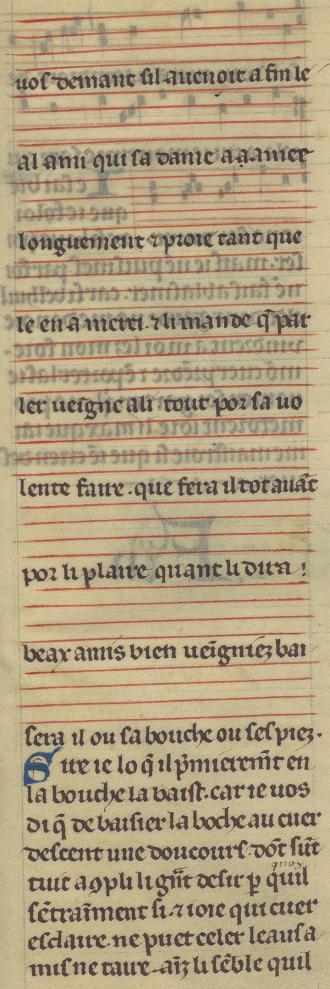 uos demant sil auenoit a fin le
al ami qui sa dame a aamee
longuement ⁊ proie tant que
le en a merci. ⁊ li mande q̃ par
ler ueigne a li tout por sa uo
lente faire. que fera il tot auãt
por li plaire quant li dira !
beax amis bien ueigniez bai
sera il ou sa bouche ou ses piez.
Sire ie lo q̃ il p̃mieremt en
la bouche la baist. car ie uos
di q̃ de baisier la boche au cuer
descent une doucours. dõt sũt
tuit a ꝯpli li gñt desir ꝑ quil
sẽtraiment si. ⁊ ioie qui cuer
esclaire. ne puet celer leaus a
mis ne taire. aĩz li sẽble quil